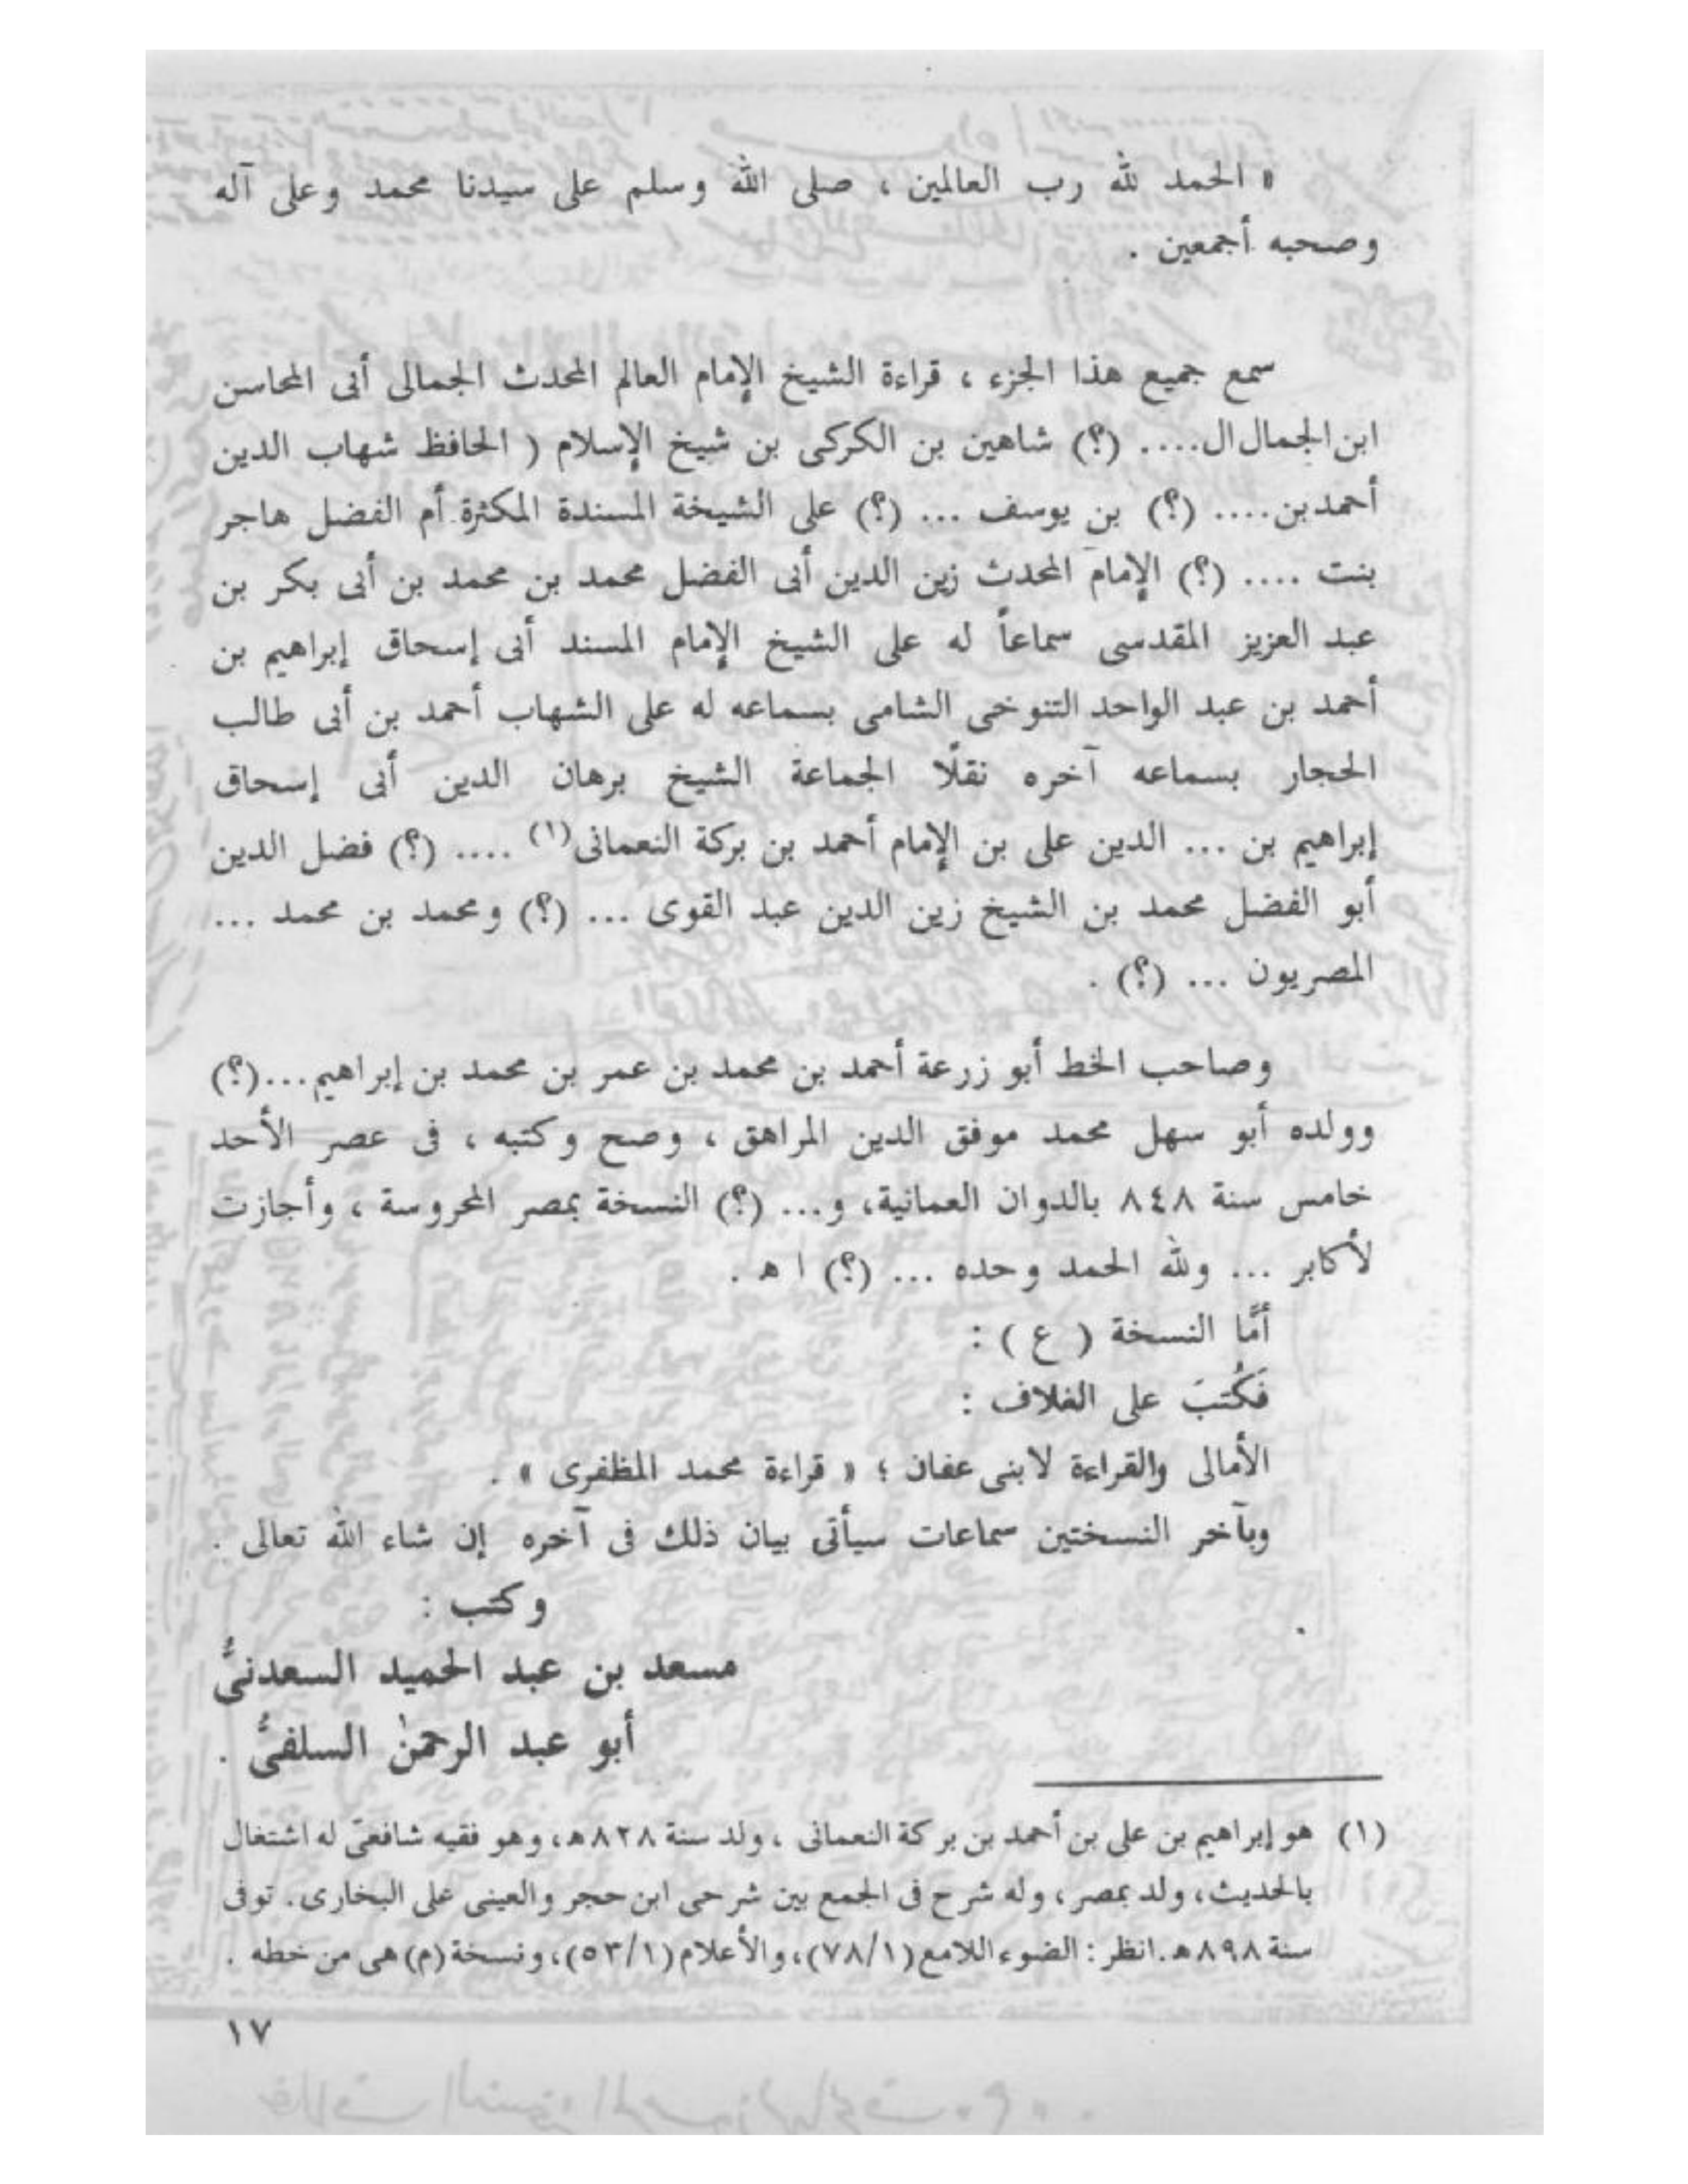 « الحمد لله رب العالمين ، صلى الله وسلم على سيدنا محمد وعلى آله
وصحبه أجمعين .
سمع جميع هذا الجزء ، قراءة الشيخ الإمام العالم المحدث الجمالى أبى المحاسن
ابن الجمال ال.... (؟) شاهين بن الكركى بن شيخ الإسلام ( الحافظ شهاب الدين
أحمد بن.... (؟) بن يوسف ... (؟) على الشيخة المسندة المكثرة أم الفضل هاجر
بنت .... (؟) الإمام المحدث زين الدين أبى الفضل محمد بن محمد بن أبى بكر بن
عبد العزيز المقدسى سماعاً له على الشيخ الإمام المسند أبى إسحاق إبراهيم بن
أحمد بن عبد الواحد التنوخى الشامى بسماعه له على الشهاب أحمد بن أبى طالب
الحجار بسماعه آخره نقلًا الجماعة الشيخ برهان الدين أبى إسحاق
إبراهيم بن ... الدين على بن الإمام أحمد بن بركة النعمانى(١) .... (؟) فضل الدين
أبو الفضل محمد بن الشيخ زين الدين عبد القوى ... (؟) ومحمد بن محمد ...
المصريون ... (؟) .
وصاحب الخط أبو زرعة أحمد بن محمد بن عمر بن محمد بن إبراهيم...(؟)
وولده أبو سهل محمد موفق الدين المراهق ، وصح وكتبه ، فى عصر الأحد
خامس سنة ٨٤٨ بالدوان العمانية، و... (؟) النسخة بمصر المحروسة ، وأجازت
لأكابر ... ولله الحمد وحده ... (؟) ا هـ .
أمَّا النسخة ( ع ) :
فَكُتبَ على الغلاف :
الأمالى والقراءة لابنى عفان ؛ « قراءة محمد المظفرى » .
وبآخر النسختين سماعات سيأتى بيان ذلك فى آخره إن شاء الله تعالى .
وكتب :
مسعد بن عبد الحميد السعدنىُّ
أبو عبد الرحمٰن السلفىُّ .
(١) هو إبراهيم بن على بن أحمد بن بركة النعمانى ، ولد سنة ٨٢٨هـ، وهو فقيه شافعىّ له اشتغال
بالحديث، ولد بمصر، وله شرح فى الجمع بين شرحى ابن حجر والعينى على البخارى. توفى
سنة ٨٩٨هـ. انظر: الضوء اللامع (٧٨/١)، والأعلام (٥٣/١)، ونسخة (م) هى من خطه .
١٧